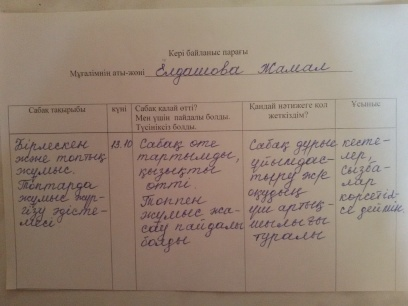 Кері байланыс парағы
Мұғалімнің аты-жөні Елдашова Жамал
Сабақ тақырыбы
күні
Сабақ қалай өтті?
Мен үшін пайдалы болды.
Түсініксіз болды.
Қандай нәтижеге қол
жеткіздім?
Ұсыныс
Бірлескен
және топтық
жұмыс.
Топтарда
жұмыс жүр-
гізу әдісте-
месі
13.10
Сабақ өте
тартымды,
қызықты
өтті.
Топпен
жұмыс жа-
сау пайдалы
болды
Сабақ дұрыс
ұйымдас-
тыру ж/е
оқудың
үш артық-
шылығы
туралы
кесте-
лер,
сызба-
лар
көрсетіл-
се деймін.